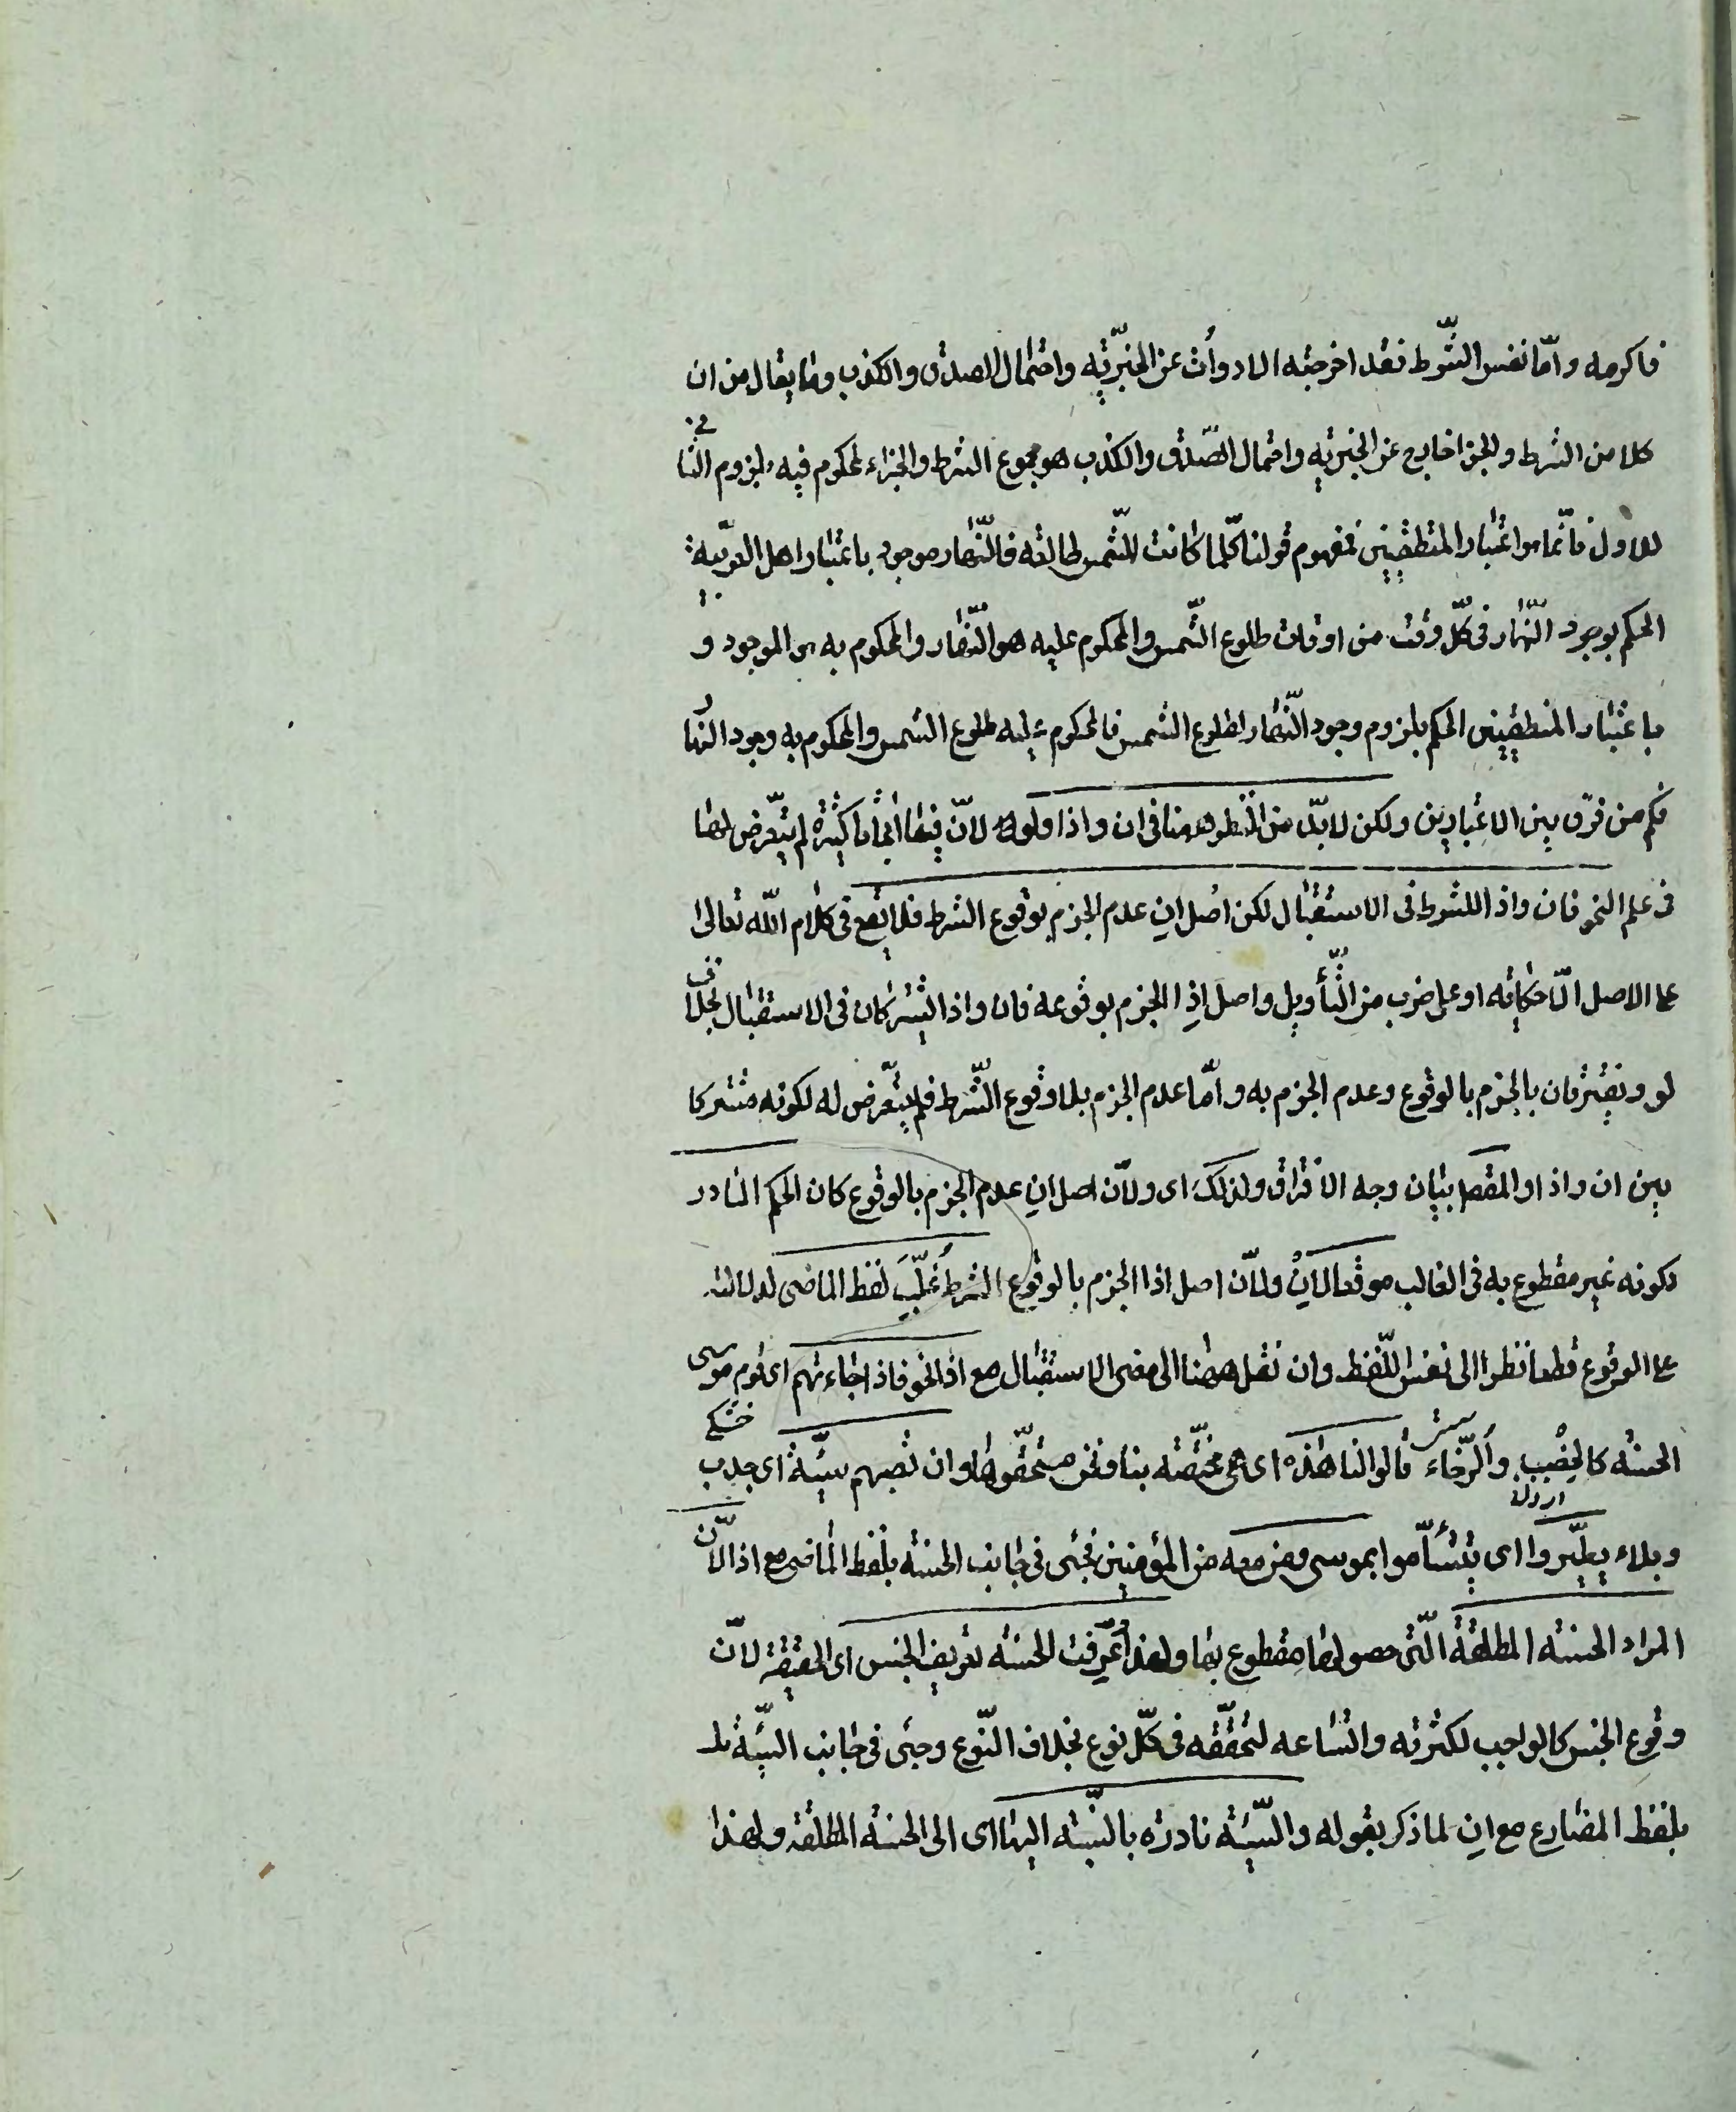 فاكرمه وامّا نفس الشّرط فقد اخرجته الادوأت عن الخبريّته واحتمال الصدق والكذب وما يقال من ان
كلا من الشرط والجزا خارج عن الخبريته واحتمال الصّدق والكذب هو مجموع الشرط والجزاء لمحكوم فيه بلزوم الثانى
للاول فانّما هو اعتبار المنطقيين فمفهوم قولنا كلّما كانت الشّمس طالعه فالنّهار موجود باعتبار اهل العربيّة
الحكم بوجود النّهار فى كلّ وقت من اوقات طلوع الشّمس والمحكوم عليه هو النّهار والمحكوم به هو الموجود و
باعتبار المنطقيين الحكم بلزوم وجود النّهار لطلوع الشمس فالمحكوم عليه طلوع الشمس والمحكوم به وجود النّهار
فكم من فرق بين الاعتبارين ولكن لا بدّ من النّظر ههنا فى ان واذا ولو لانّ فيها ابحاثا كثيرة لم يتعّرض لها
فى علم النحو فان واذ اللشرط فى الاستقبال لكن اصل ان عدم الجزم بوقوع الشرط فلا يقع فى كلام اللّه تعالى
على الاصل الّا حكايته او على ضرب من التّأويل واصل اذِا الجزم بوقوعه فان واذا يشتركان فى الاستقبال بخلاف
لو ويفترقان بالجزم بالوقوع وعدم الجزم به وامّا عدم الجزم بلا وقوع الشّرط فلم يتعّرض له لكونه مشتركا
بين ان واذا والمقصد بيان وجه الافتراق ولذلك اى ولانّ اصل انِ عدم الجزم بالوقوع كان الحكم النادر
لكونه غير مقطوع به فى الغالب موقعا لانِْ ولانّ اصل اذا الجزم بالوقوع الشرط غُلّبَ لفظ الماضى لدلالته
على الوقوع قطعا نظرا الى نفس اللّفظ وان نقل ههنا الى معنى الاستقبال مع اذا نحو فاذا جاءتهم اى قوم موسى
الحسنه كالخِصْب والّرخاء قالوا لنا هذه اى هى مختصّته بنا ونحن مستحقّوها وان تصبهم سيّئة اى جدب
وبلاء يطيّروا اى يتشأّموا بموسى ومن معه من المؤمنين فجئى فى جانب الحسنه بلفظ الماضى مع اذا لانّ
المراد الحسنته المطلقة الّتى حصولها مقطوع بها ولهذا عُرّفت الحسنه تعريف الجنس اى الحقيقة لانّ
وقوع الجنس كالواجب لكثرته واتّساعه لتحقّقه فى كلّ نوع بخلاف النّوع وجئى فى جانب السيّئة بلـ
بلفظ المضارع مع انِ لما ذكر بقوله والسّيئة نادرة بالنّسبته اليها اى الى الحسنة المطلقة ولهذا